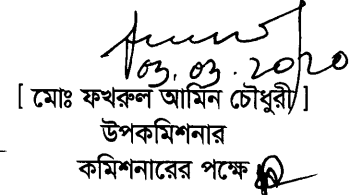 03.03.2020
[ মোঃ ফখরুল আমিন চৌধুরী ]
উপকমিশনার
কমিশনারের পক্ষে